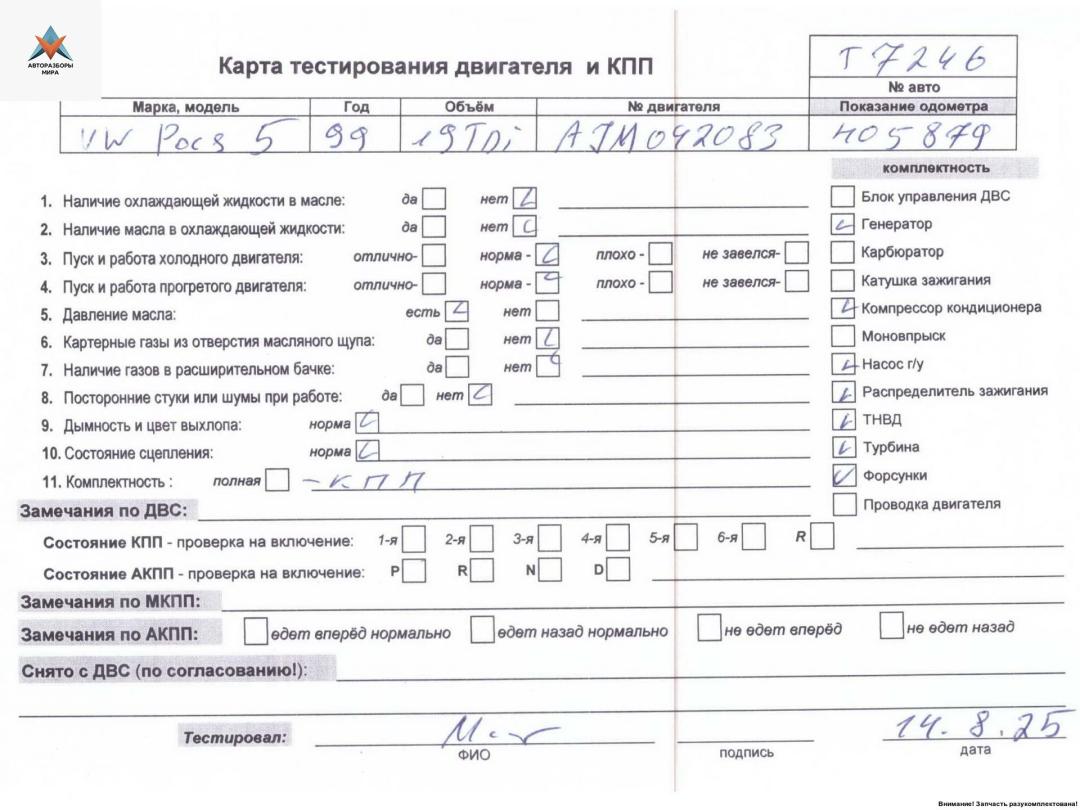 АВТОРАЗБОРЫ
МИРА
Карта тестирования двигателя и КПП
T 7246
№ авто
Марка, модель Год Объём № двигателя Показание одометра
VW Pocs 5 99 19TDi AJM042083 405879
комплектность
1. Наличие охлаждающей жидкости в масле: да нет
Блок управления ДВС
2. Наличие масла в охлаждающей жидкости: да нет
Генератор
3. Пуск и работа холодного двигателя: отлично- норма - плохо - не завелся-
Карбюратор
4. Пуск и работа прогретого двигателя: отлично- норма - плохо - не завелся-
Катушка зажигания
5. Давление масла: есть нет
Компрессор кондиционера
6. Картерные газы из отверстия масляного щупа: да нет
Моновпрыск
7. Наличие газов в расширительном бачке: да нет
Насос г/у
8. Посторонние стуки или шумы при работе: да нет
Распределитель зажигания
9. Дымность и цвет выхлопа: норма
ТНВД
10. Состояние сцепления: норма
Турбина
11. Комплектность : полная - КПП
Форсунки
Проводка двигателя
Замечания по ДВС:
Состояние КПП - проверка на включение: 1-я 2-я 3-я 4-я 5-я 6-я R
Состояние АКПП - проверка на включение: P R N D
Замечания по МКПП:
Замечания по АКПП: едет вперёд нормально едет назад нормально не едет вперёд не едет назад
Снято с ДВС (по согласованию!):
Тестировал: 14.8.25
ФИО подпись дата
Внимание! Запчасть разукомплектована!